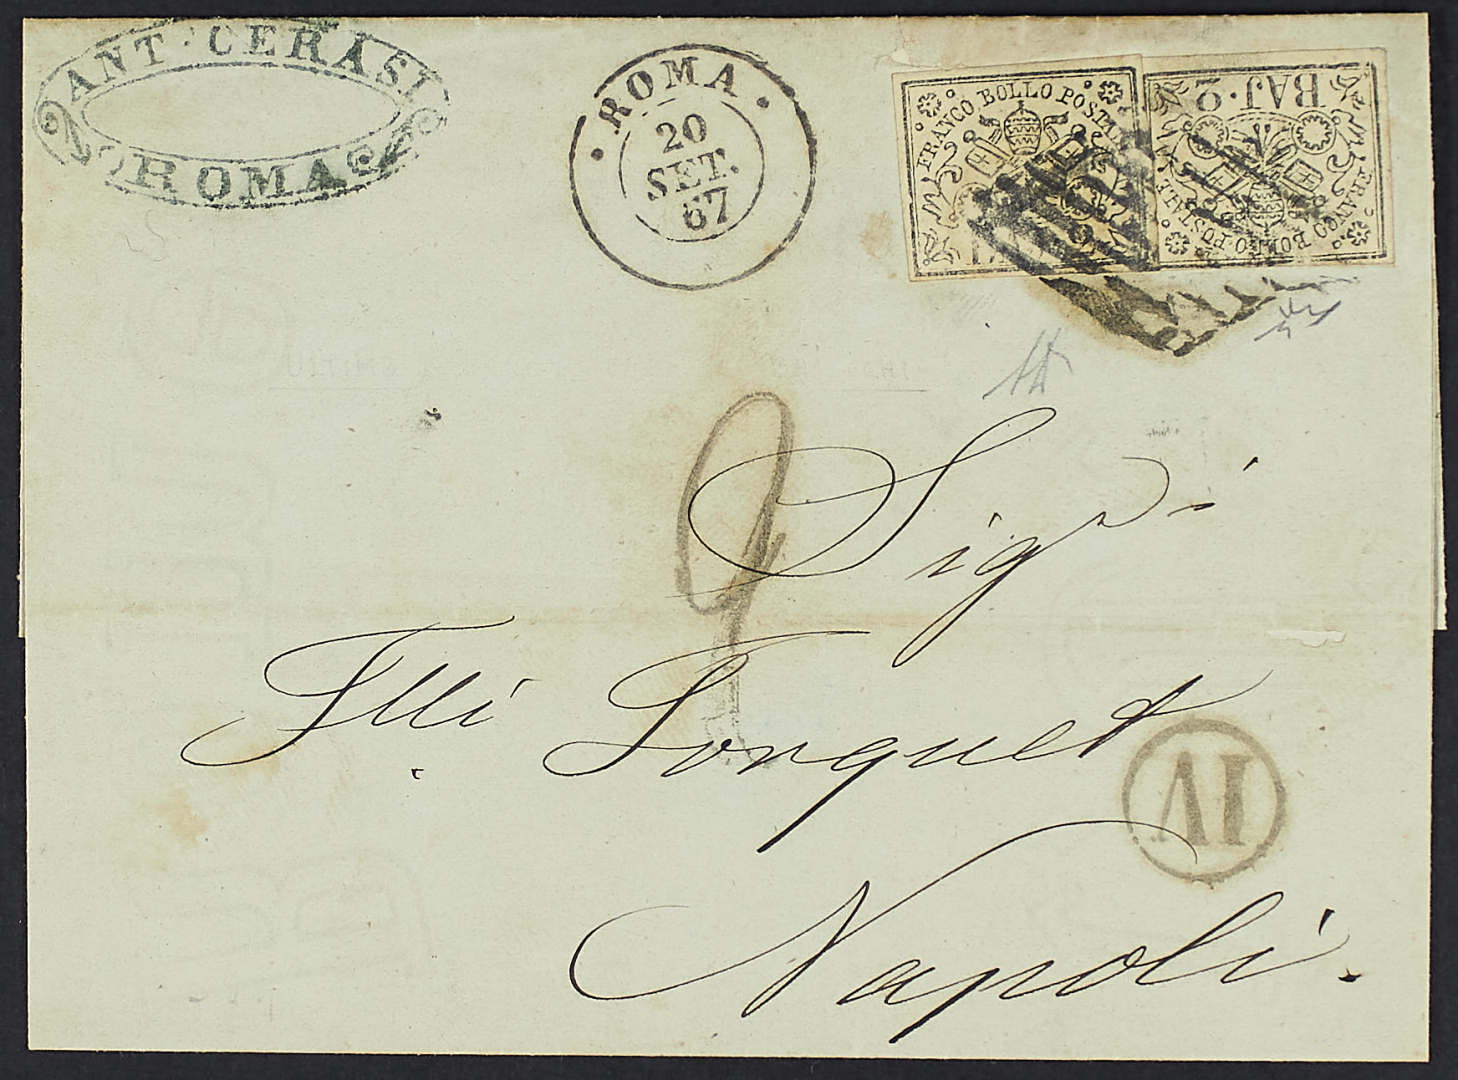 ANT. CERASI
ROMA
ROMA
20
SET.
67
FRANCO BOLLO POSTALE
BAJ
BAJ. 2
FRANCO BOLLO POSTALE
Sigri
Flli Forquet
IV
Napoli.